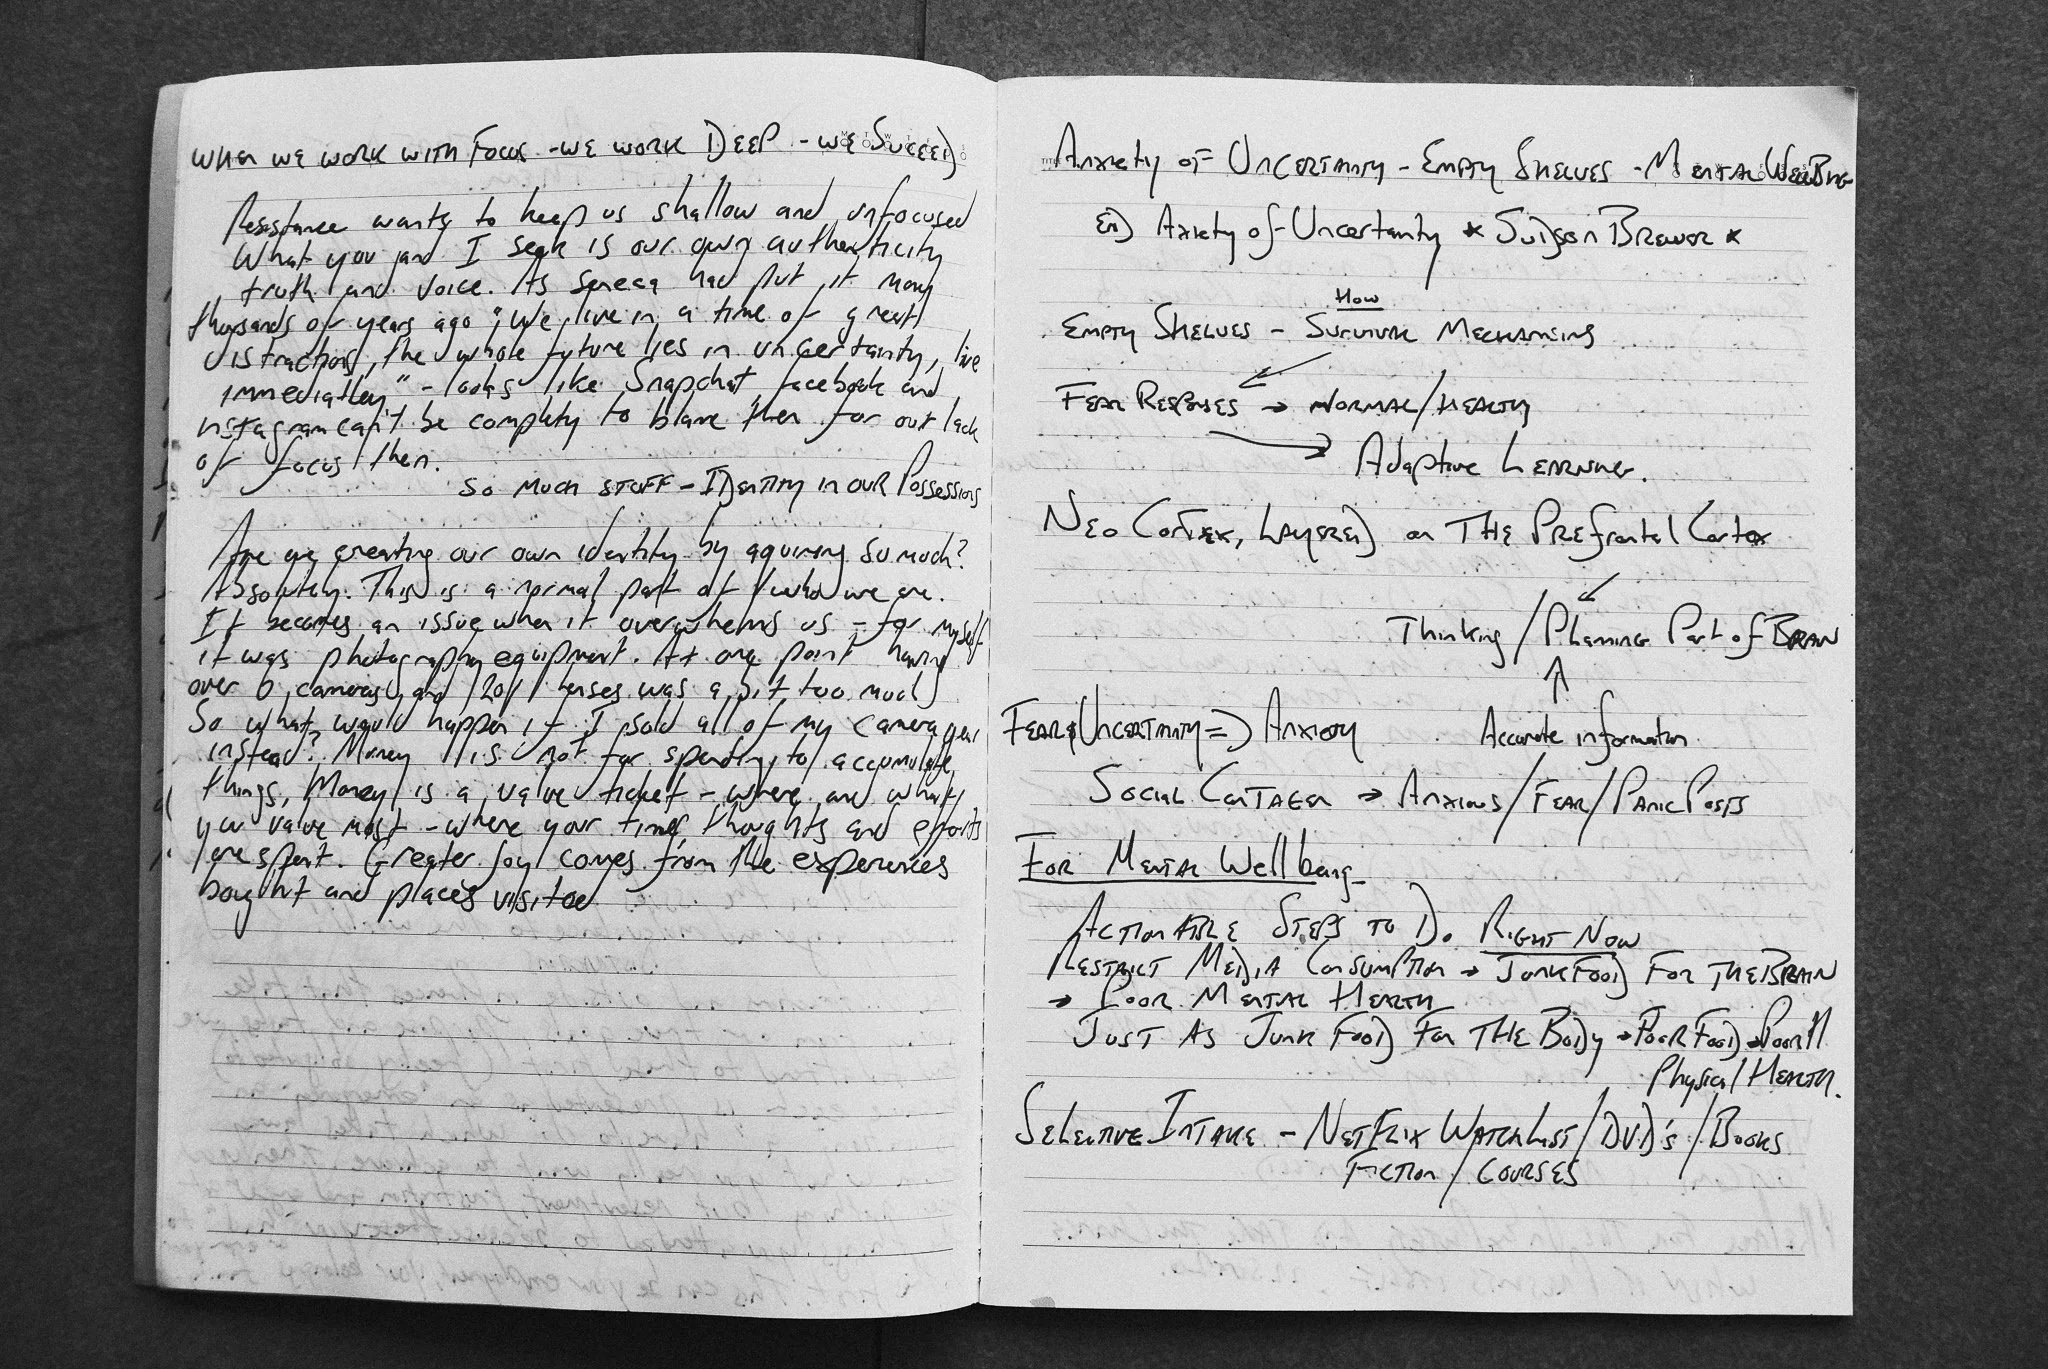 When we work with Focus - we work Deep - we Succeed
Resistance wants to keep us shallow and unfocused
What you and I seek is our own authenticity
truth and voice. As Seneca had put it many
thousands of years ago "We live in a time of great
distractions, the whole future lies in uncertainty, live
immediatley" - looks like Snapchat, facebook and
instagram can't be completly to blame then for our lack
of focus then.
So much stuff - Identity in our Possessions
Are we creating our own identity by aquiring so much?
Absolutely. This is a normal part of who we are.
It becomes an issue when it overwhelms us - for myself
it was photography equipment. At one point having
over 6 cameras and 20 lenses was a bit too much
So what would happen if I sold all of my camera gear
instead? Money is not for spending to accumulate
things, Money is a value ticket - where and what
you value most - where your time, thoughts and efforts
are spent. Greater joy comes from the experiences
bought and places visited
Anxiety of Uncertainty - Empty Shelves - Mental WellBing
Anxiety of Uncertainty * Judson Brewer *
How
Empty Shelves - Survival Mechanisms
Fear Responses → Normal/Healthy
Adaptive Learning.
Neo Cortex, Layered on The Prefrontal Cortex
Thinking / Planning Part of Brain
Fear & Uncertainty => Anxiety Accurate information
Social Contagen → Anxious/Fear/Panic Posts
For Mental Wellbeing
Actionable Steps to Do Right Now
Restrict Media Consumption → Junk Food For The Brain
→ Poor Mental Health
Just As Junk Food For The Body → Poor Food → Poor
Physical Health.
Selective Intake - Netflix Watch List / DVD's / Books
Fiction / Courses